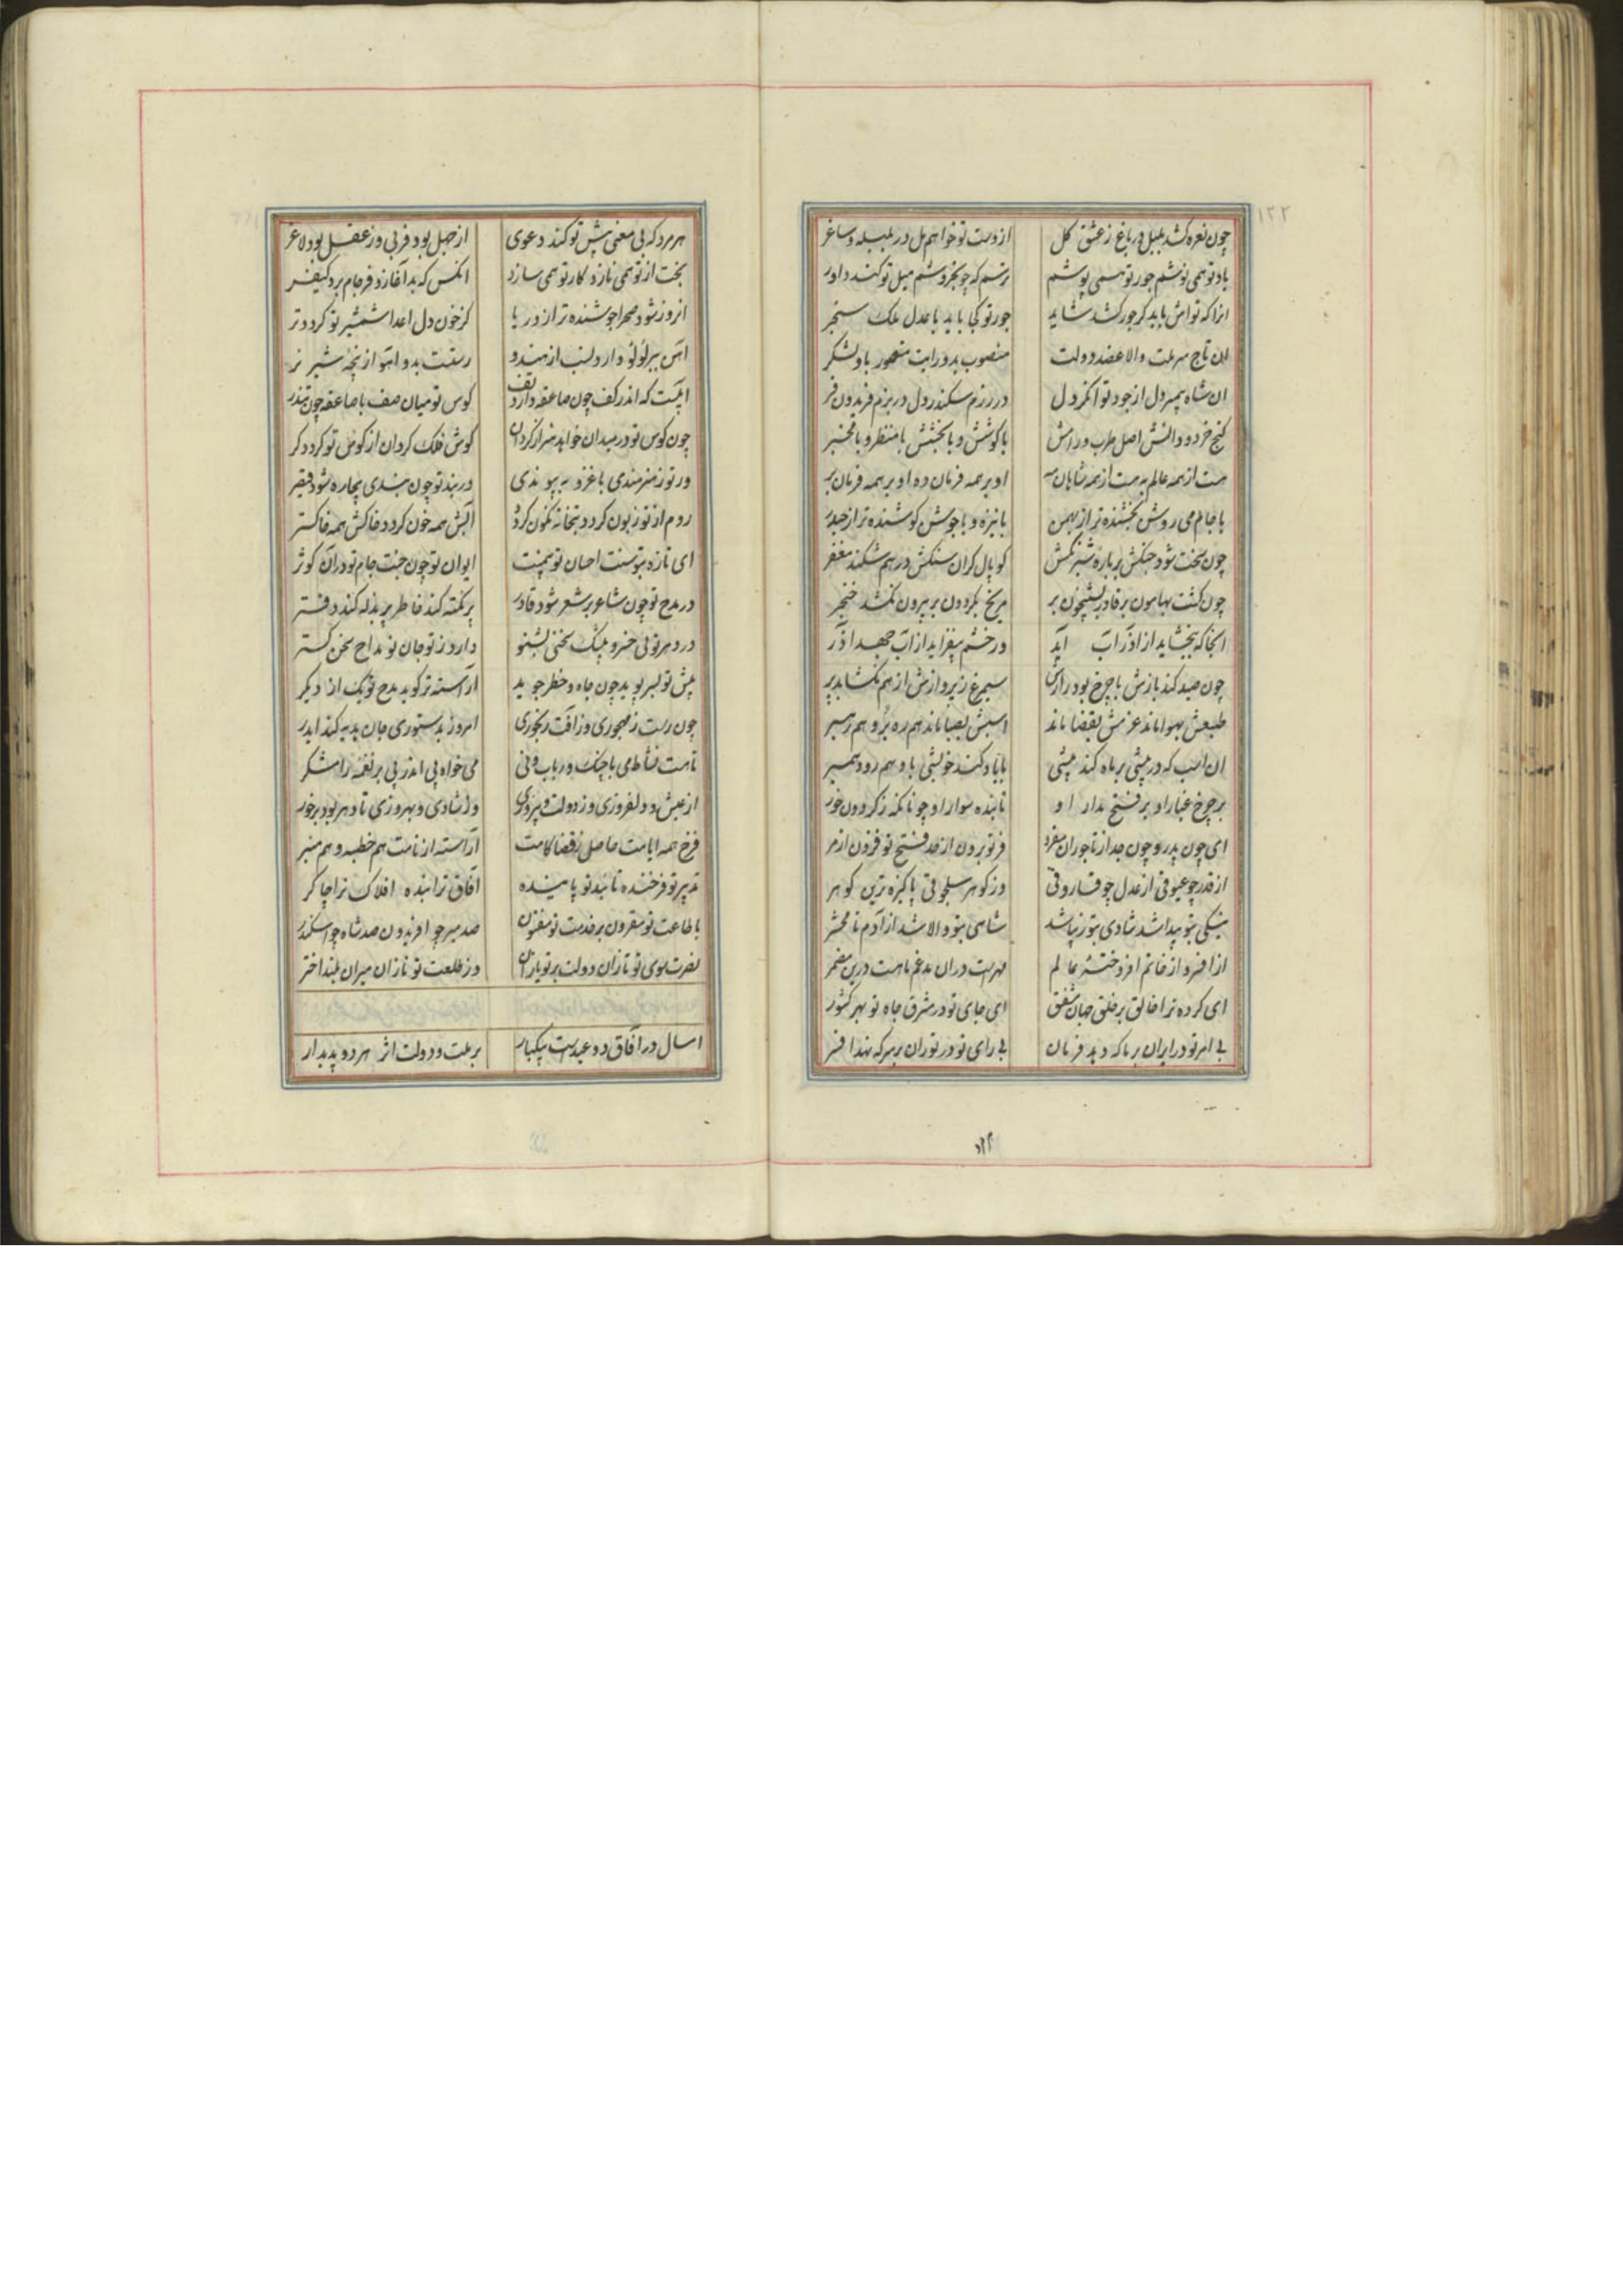 چون نعره کشد بلبل در باغ ز عشق گل از دست تو خواهم مل در بلبله و ساغر
یاد تو همی نوشم جور تو همی پوشم ترسم که چو بخروشم میل تو کند داور
انرا که توانش باید کر جور کشد شاید جور تو کجا باید با عدل ملک سنجر
ان تاج سر ملت والا عضد دولت منصوب بدو رایت منصور بدو لشکر
ان شاه پسر دل از جود توانکر دل در رزم سکندر دل در بزم فریدون فر
کنج خرد و دانش اصل طرب و رامش با کوشش و با بخشش با منظر و با مخبر
هست از همه عالم به هست از همه شاهان مه او بر همه فرمان ده او بر همه فرمان بر
با جام می روشن بخشنده تر از بهمن با نیزه و با جوشن کوشنده تر از حیدر
چون سخت شود جنکش بر باره شبرنکش کوپال کران سنکش در هم شکند مغفر
چون کشت بهامون بر قادر بشبیخون بر مریخ بکردون بر بیرون نکشد خنجر
انجا که ببخشاید از اذر آب آید ور خشم بیفزاید از آب جهد اذر
چون صید کند بازش با چرخ بود رازش سیمرغ ز پروازش از هم نکشاید پر
طبعش بهوا ماند عزمش بقضا ماند اسبش بصبا ماند هم ره بر و هم رهبر
ان اسب که در پیشی بر ماه کند پیشی با باد کند خویشی با وهم رود همبر
بر چرخ غبار او بر فتح مدار او تابنده سوار او چونانکه ز کردون خور
ای چون پدر و چون جد از تاجوران مفرد فر تو برون از حد فتح تو فزون از مر
از قدر چو عیوقی از عدل چو فاروقی وز کوهر سلجوقی پاکیزه ترین کوهر
نیکی بتو پیدا شد شادی بتو زیبا شد شاهی بتو والا شد از آدم تا محشر
از افسر و از خاتم افروختهٔ عالم مهرست در ان مدغم ماهست درین مضمر
ای کرده ترا خالق بر خلق جهان مشفق ای جای تو در مشرق جاه تو بهر کشور
بی امر تو در ایران بر ما که دهد فرمان بی رای تو در توران بر سر که نهد افسر
هر مرد که بی معنی پیش تو کند دعوی از جهل بود فربی وز عقل بود لاغر
بخت از تو همی نازد کار تو همی سازد انکس که بد آغازد فرجام برد کیفر
انروز شود صحرا جوشنده تر از دریا کز خون دل اعدا شمشیر تو کردد تر
رستت بدو آهو از پنجه شیر نر
کوس تو میان صف با صاعقه چون تندر
چون کوس تو در میدان خواهد هنر از کردان کوش فلک کردان از کوس تو کردد کر
ور تو ز هنرمندی با غزو بپیوندی در بند تو چون بندی بیچاره شود قیصر
روم از تو زبون کردد بتخانه نکون کردد آبش همه خون کردد خاکش همه خاکستر
ای تازه بتو سنت احسان تو بیمنت ایوان تو چون جنت جام تو در آن کوثر
در مدح تو چون شاعر بر شعر شود قادر پر نکته کند خاطر پر بذله کند دفتر
در دهر توئی خسرو بی‌شک سخنی بشنو دارو ز تو جان نو مداح سخن کستر
پیش تو بسر پوید چون جاه و خطر جوید آراسته تر کوید مدح تو یک از دیکر
چون رست ز مهجوری وز آفت رنجوری امروز بدستوری جان هدیه کند ایدر
تا هست نشاط می با چنک و رباب و نی می خواه پی اندر پی بر نغمه رامشکر
از عیش و دلفروزی وز دولت و پیروزی وز شادی و بهروزی تا دهر بود برخور
فرخ همه ایامت حاصل ز قضا کامت آراسته از نامت هم خطبه و هم منبر
تدبیر تو فرخنده تایید تو پاینده آفاق ترا بنده افلاک ترا چاکر
با طاعت تو مقرون بر خدمت تو مفتون صد میر چو افریدون صد شاه چو اسکندر
نصرت سوی تو تازان دولت بر تو یازان وز طلعت تو نازان میران بلند اختر
امسال در آفاق دو عیدست بیکبار بر ملت و دولت اثر هر دو پدیدار
۱۲۲